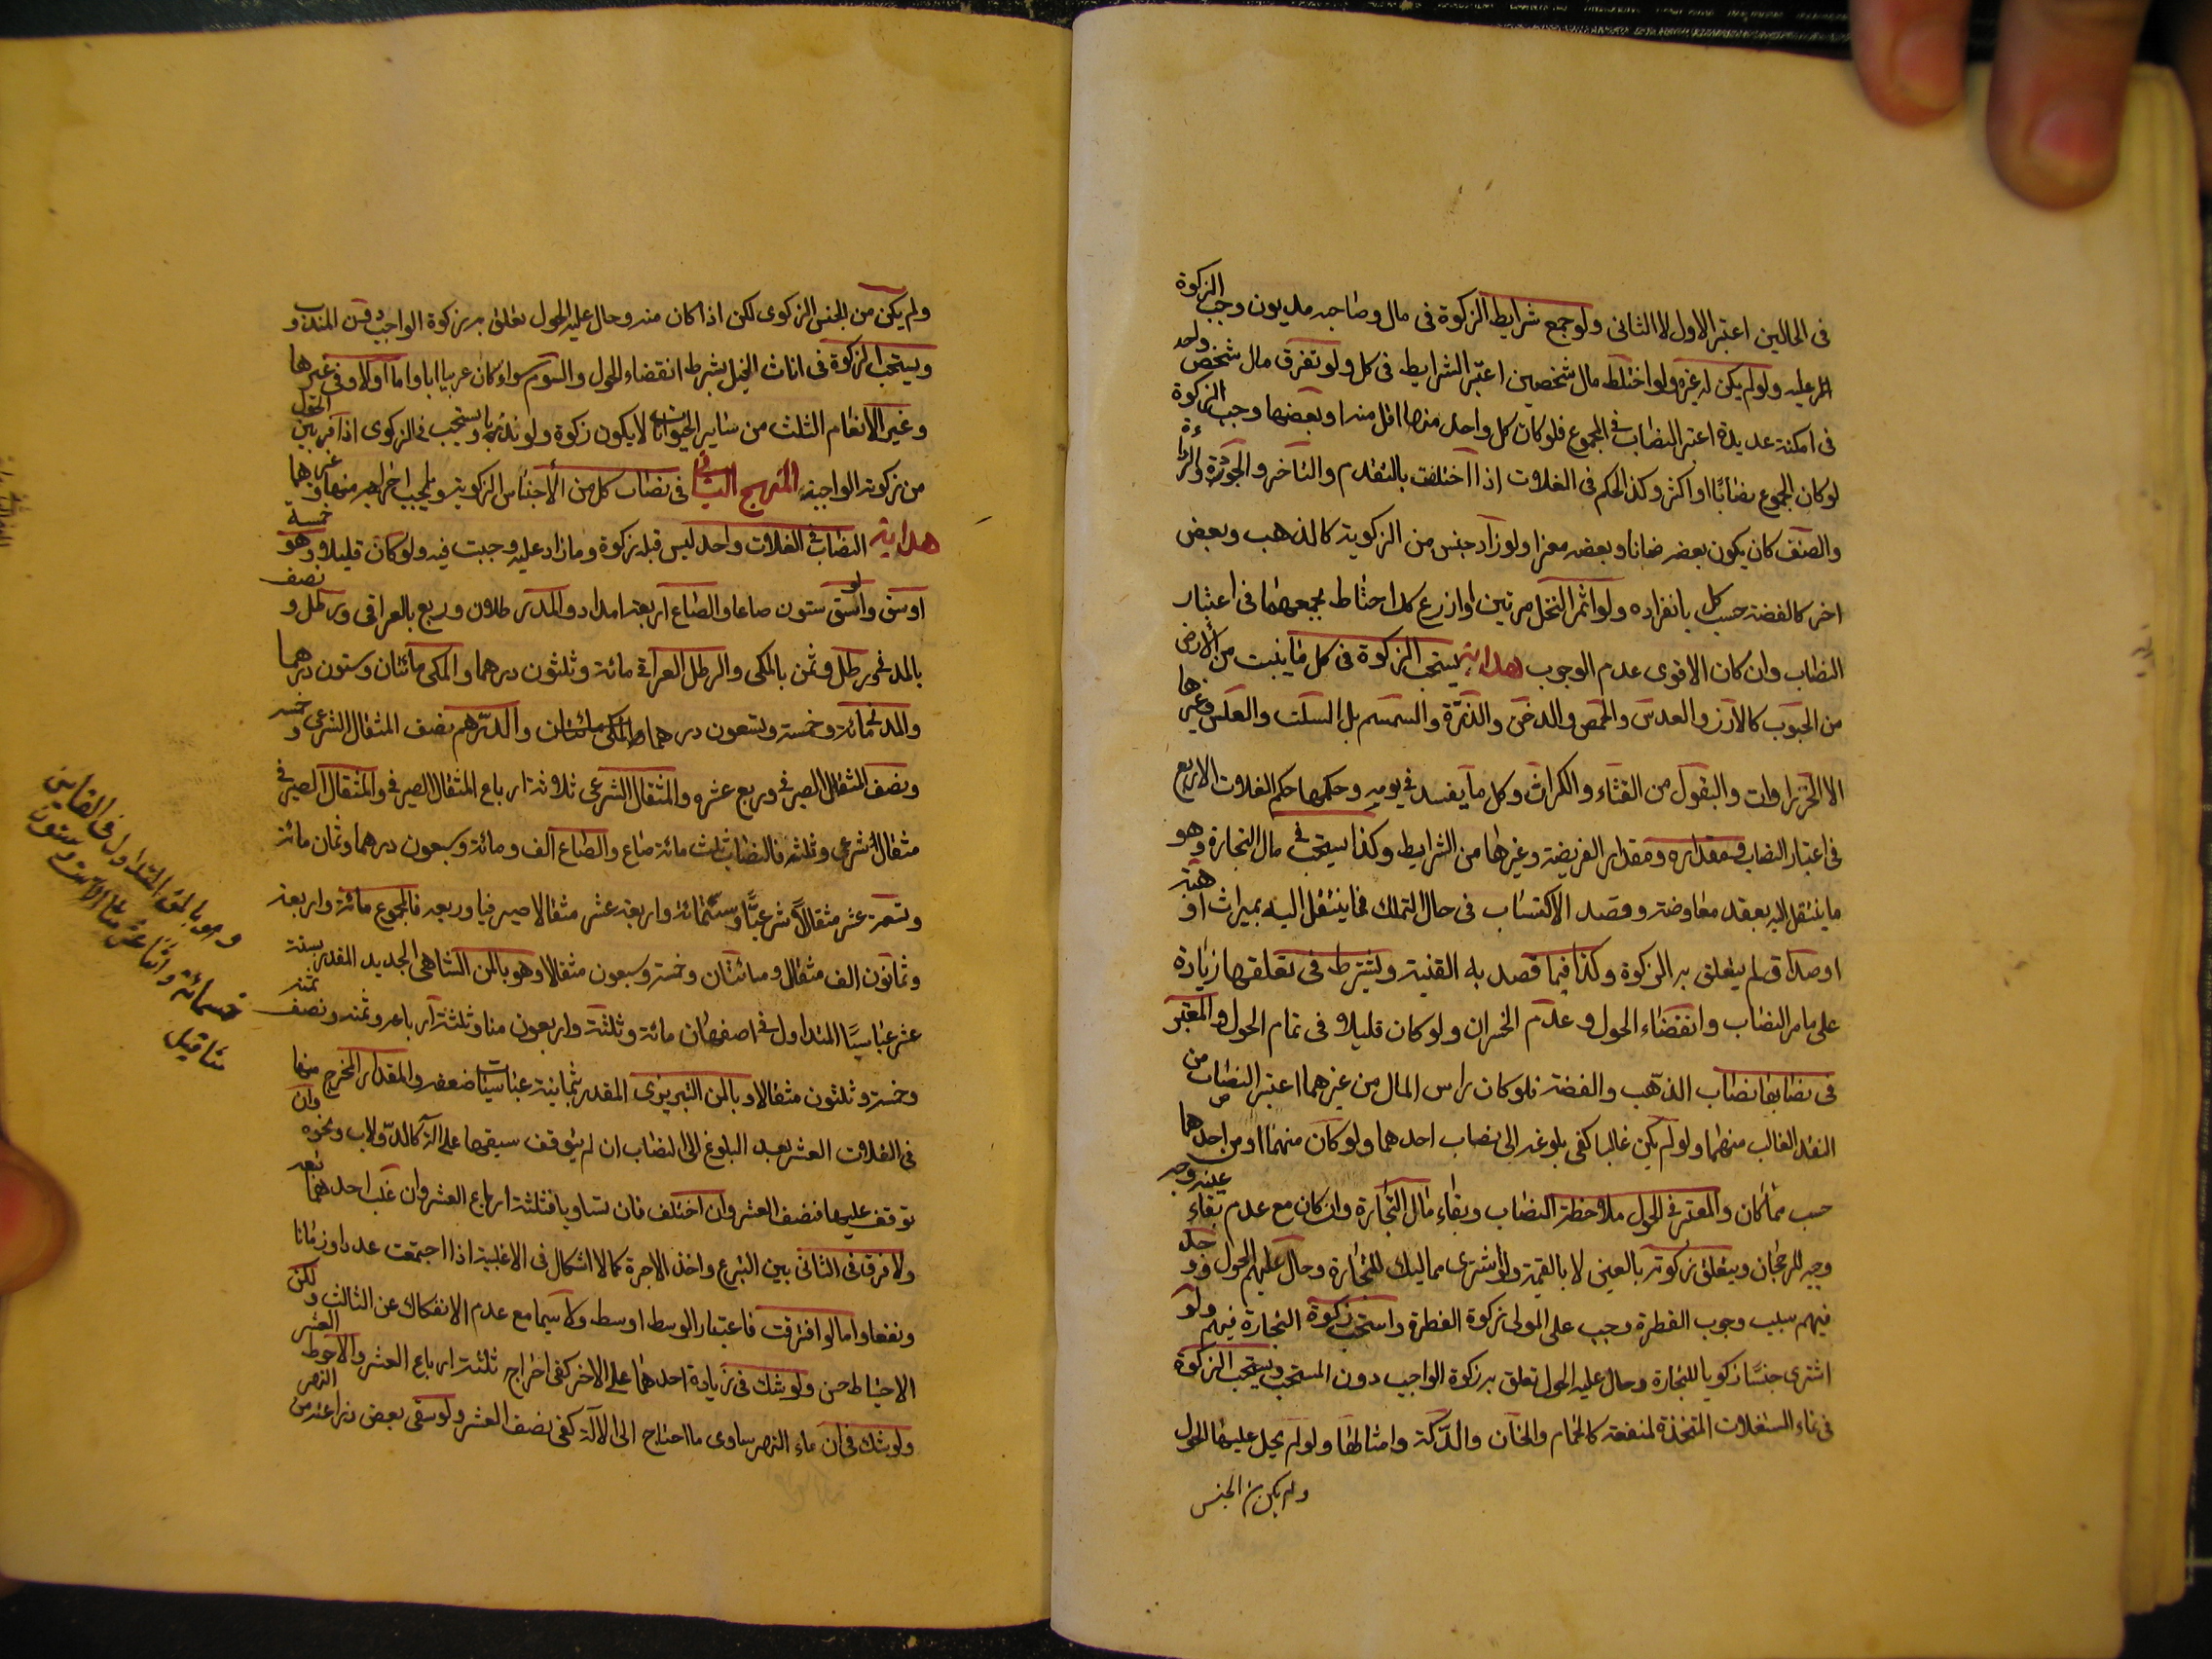 فى الحالين اعتبر الاول لا الثانى ولو جمع شرايط الزكوة فى مال وصاحبه مديون وجب الزكوة
عليه ولو لم يكن له غيره ولو اختلط مال شخصين اعتبر الشرايط فى كل ولو تفرق مال شخص واحد
فى امكنة عديدة اعتبر النصاب فى المجموع فلو كان كل واحد منها اقل منه او بعضها وجب الزكوة
لو كان المجموع نصابا او اكثر وكذا الحكم فى الغلات اذا اختلفت بالتقدم والتاخر والجودة والرداءة
والصنف كان يكون بعضه ضانا وبعضه معزا ولو زاد جنس من الزكوية كالذهب وبعض
اخر كالفضة حسب كل بانفراده ولو اثمر النخل مرتين او ازرع كل احتاط بجمعهما فى اعتبار
النصاب وان كان الاقوى عدم الوجوب هداية يستحب الزكوة فى كل ما ينبت من الارض
من الحبوب كالارز والعدس والحمص والدخن والذرة والسمسم بل السلت والعلس وغيرها
الا الخضراوات والبقول من القثاء والكراث وكل ما يفسد فى يومه وحكمها حكم الغلات الاربع
فى اعتبار النصاب ومقداره ومقدار الفريضة وغيرها من الشرايط وكذا يستحب فى مال التجارة وهو
ما ينتقل اليه بعقد معاوضة وقصد الاكتساب فى حال التملك فما ينتقل اليه بميراث او هبة
او صداق لم يتعلق به الزكوة وكذا فيما قصد به القنية ويشترط فى تعلقها زيادة
على ما مر النصاب وانقضاء الحول وعدم الخسران ولو كان قليلا فى تمام الحول والمعتبر
فى نصابها نصاب الذهب والفضة فلو كان راس المال من غيرهما اعتبر النصاب من
النقد الغالب منهما ولو لم يكن غالبا كفى بلوغه الى نصاب احدهما ولو كان منهما او من احدهما
حسب مما كان والمعتبر فى الحول ملاحظة النصاب وبقاء مال التجارة وان كان مع عدم بقاء عينه وجه
وجيه للرجحان ويتعلق زكوته بالعين لا بالقيمة ولو اشترى مماليك للتجارة وحال عليهم الحول ووجد
فيهم سبب وجوب الفطرة وجب على المولى زكوة الفطرة واستحب زكوة التجارة فيهم ولو
اشترى جنسا زكويا للتجارة وحال عليه الحول تعلق به زكوة الواجب دون المستحب ويستحب الزكوة
فى نماء المستغلات المتخذة لمنفعة كالحمام والخان والدكة وامثالها ولو لم يحل عليها الحول
ولم يكن من الجنس
ولم يكن من الجنس الزكوى لكن اذا كان منه وحال عليه الحول تعلق به زكوة الواجب دون المندوب
ويستحب الزكوة فى اناث الخيل بشرط انقضاء الحول والسوم سواء كان عربيا ابا واما اولا وفى غيرها
وغير الانعام الثلث من ساير الحيوانات لا يكون زكوة ولو نذر يستحب فى الزكوى اذا فر بين الحول
من زكوته الواجبة المنهج الثانى فى نصاب كل من الاجناس الزكوية وما يجب اخراجه منها وغيرهما
هداية النصاب فى الغلات واحد ليس قبله زكوة وما زاد عليه وجبت فيه ولو كان قليلا وهو خمسة
اوسق والوسق ستون صاعا والصاع اربعة امداد والمد رطلان وربع بالعراقى ورطل ونصف
بالمدنى ورطل وثمن بالمكى والرطل العراقى مائة وثلثون درهما والمكى مائتان وستون درهما
والمدنى مائة وخمسة وتسعون درهما والدرهم نصف المثقال الشرعى وخمسه
ونصف المثقال الصيرفى وربع عشره والمثقال الشرعى ثلاثة ارباع المثقال الصيرفى والمثقال الصيرفى
مثقال شرعى وثلثه فالنصاب ثلث مائة صاع والصاع الف ومائة وسبعون درهما وثمان مائة
وتسعة عشر مثقالا شرعيا وستمائة واربعة عشر مثقالا صيرفيا وربعه فالمجموع مائة واربعة
وثمانون الف مثقال ومائتان وخمسة وسبعون مثقالا وهو بالمن الشاهى الجديد المقدر بستة
عشر عباسيا المتداول فى اصفهان مائة وثلثة واربعون منا وثلثة ارباعه وثمنه ونصف ثمنه
وخمسة وثلثون مثقالا وبالمن التبريزى المقدر بثمانية عباسيات ضعفه والمقدار المخرج منها
فى الغلات العشر بعد البلوغ الى النصاب ان لم يتوقف سيقها على الة كالدولاب ونحوه وان
توقف عليها فنصف العشر وان اختلف فان تساويا فثلثة ارباع العشر وان غلب احدهما تبعه
ولا فرق فى الثانى بين التبرع واخذ الاجرة كما لا اشكال فى الاغلبية اذا اجتمعت عددا وزمانا
ونفعا واما لو افترقت فاعتبار الوسط اوسط ولا سيما مع عدم الانفكاك عن الثالث ولكن
الاحتياط حسن ولو شك فى زيادة احدهما على الاخر كفى اخراج ثلثة ارباع العشر والاحوط العشر
ولو شك فى ان ماء النهر يساوى ما احتاج الى الالة كفى نصف العشر ولو سقى بعض زراعته من النهر
وهو بالمن المتداول فى القاسان
خمسمائة واثنا عشر منا الا مائة وستون
مثاقيل